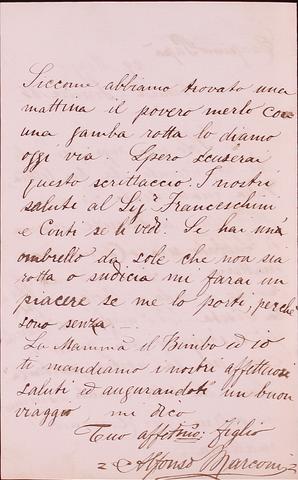 Siccome abbiamo trovato una
mattina il povero merlo con
una gamba rotta lo diamo
oggi via. Spero scuserai
questo scrittaccio. I nostri
saluti al Sigr Franceschini
e Conti se li vedi. Se hai un'
ombrello da sole che non sia
rotta o sudicia mi farai un
piacere se me lo porti, perchè
sono senza —.
La Mamma il Bimbo ed io
ti mandiamo i nostri affettuosi
saluti ed augurandoti un buon
viaggio mi dico
Tuo affettmo: figlio
Alfonso Marconi